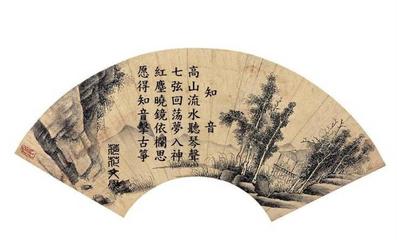 知音
高山流水聽琴聲
七弦回蕩夢入神
紅塵曉鏡依欄思
愿得知音擊古箏